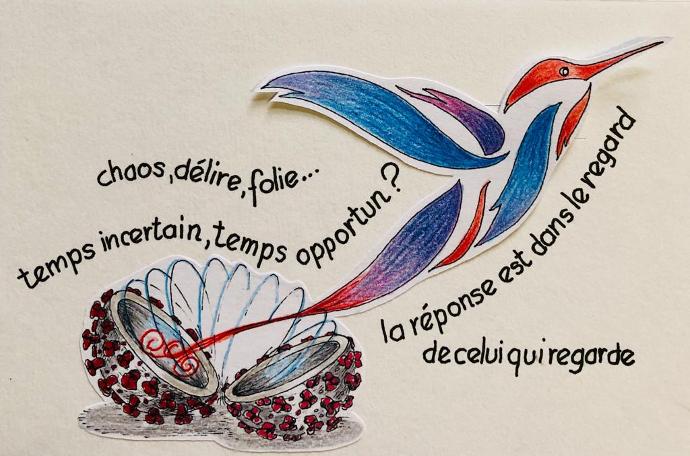 chaos, délire, folie...
temps incertain, temps opportun?
la réponse est dans le regard
de celui qui regarde